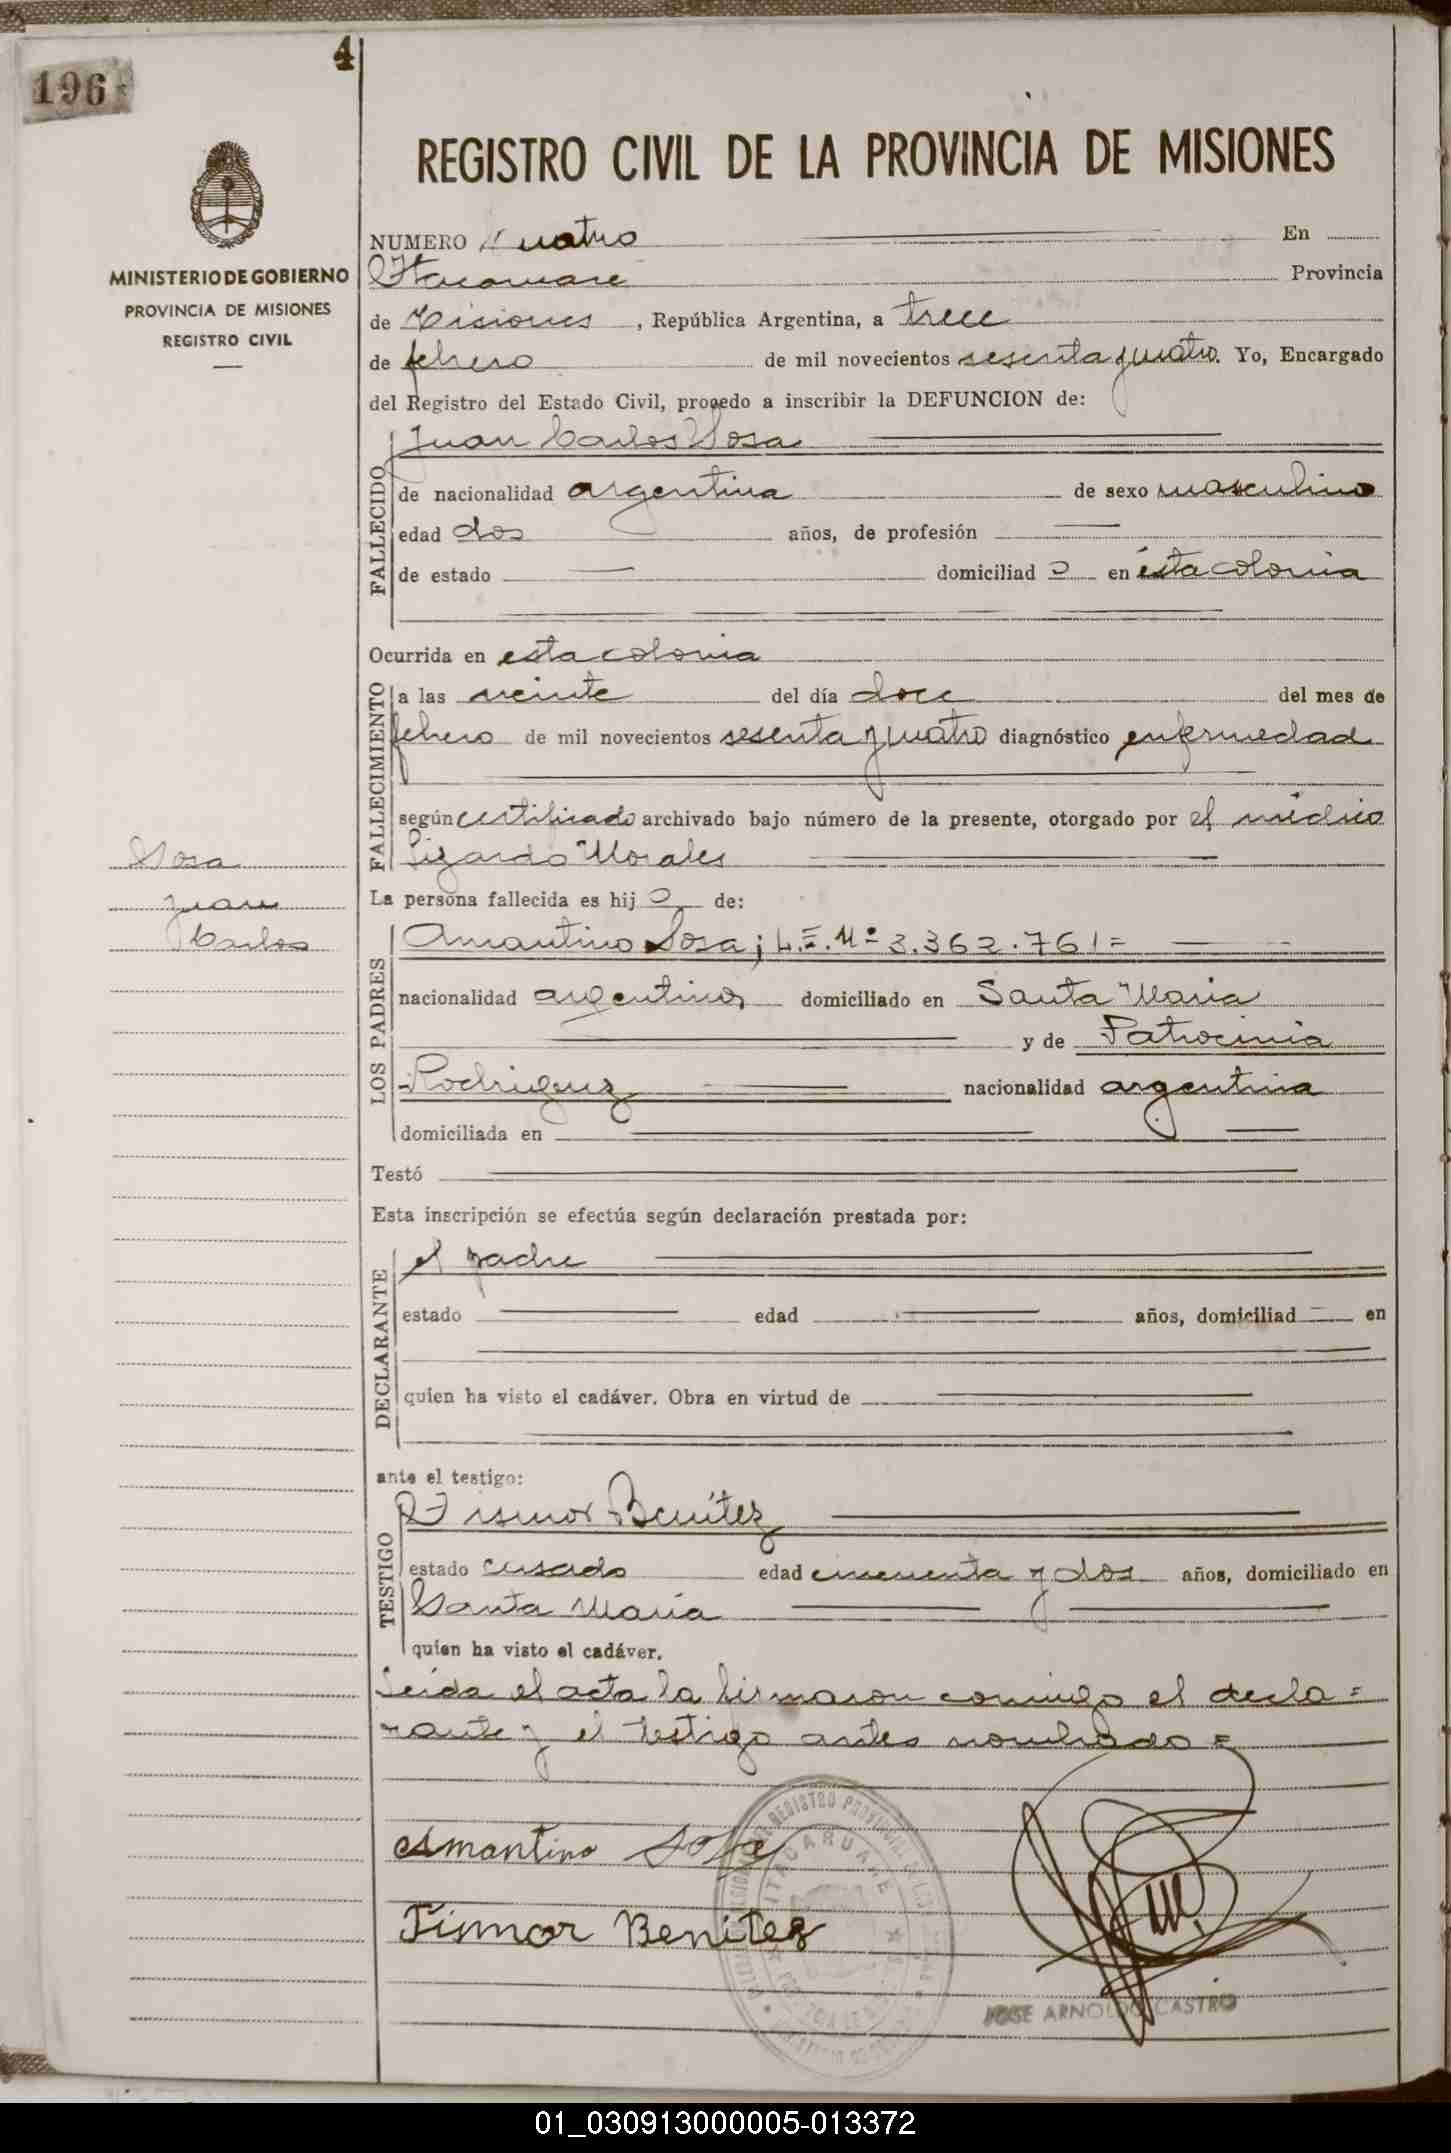 196
4
MINISTERIO DE GOBIERNO
PROVINCIA DE MISIONES
REGISTRO CIVIL
REGISTRO CIVIL DE LA PROVINCIA DE MISIONES
NUMERO Cuatro En
Itacaruare Provincia
de Misiones, República Argentina, a trece
de febrero de mil novecientos sesenta y cuatro. Yo, Encargado
del Registro del Estado Civil, procedo a inscribir la DEFUNCION de:
FALLECIDO
Juan Carlos Sosa
de nacionalidad argentina de sexo masculino
edad dos años, de profesión
de estado domiciliado en ésta colonia
Ocurrida en esta colonia
FALLECIMIENTO
a las veinte del día doce del mes de
febrero de mil novecientos sesenta y cuatro diagnóstico enfermedad
según certificado archivado bajo número de la presente, otorgado por el médico
Morales
Sosa
Juan
Carlos
La persona fallecida es hijo de:
LOS PADRES
Amantino Sosa; L.E. Nº 3.362.761=
nacionalidad argentinos domiciliado en Santa María
y de Patrocinia
Rodriguez nacionalidad argentina
domiciliada en
Testó
Esta inscripción se efectúa según declaración prestada por:
DECLARANTE
el padre
estado edad años, domiciliad en
quien ha visto el cadáver. Obra en virtud de
ante el testigo:
TESTIGO
Benítez
estado casado edad cincuenta y dos años, domiciliado en
Santa María
quien ha visto el cadáver.
Leída el acta la firmaron conmigo el decla=
rante y el testigo antes nombrado=
Amantino Sosa
Tismor Benitez
REGISTRO PROVINCIAL DE LAS
ITACARUARE
JOSE ARNOLDO CASTRO
01_030913000005-013372